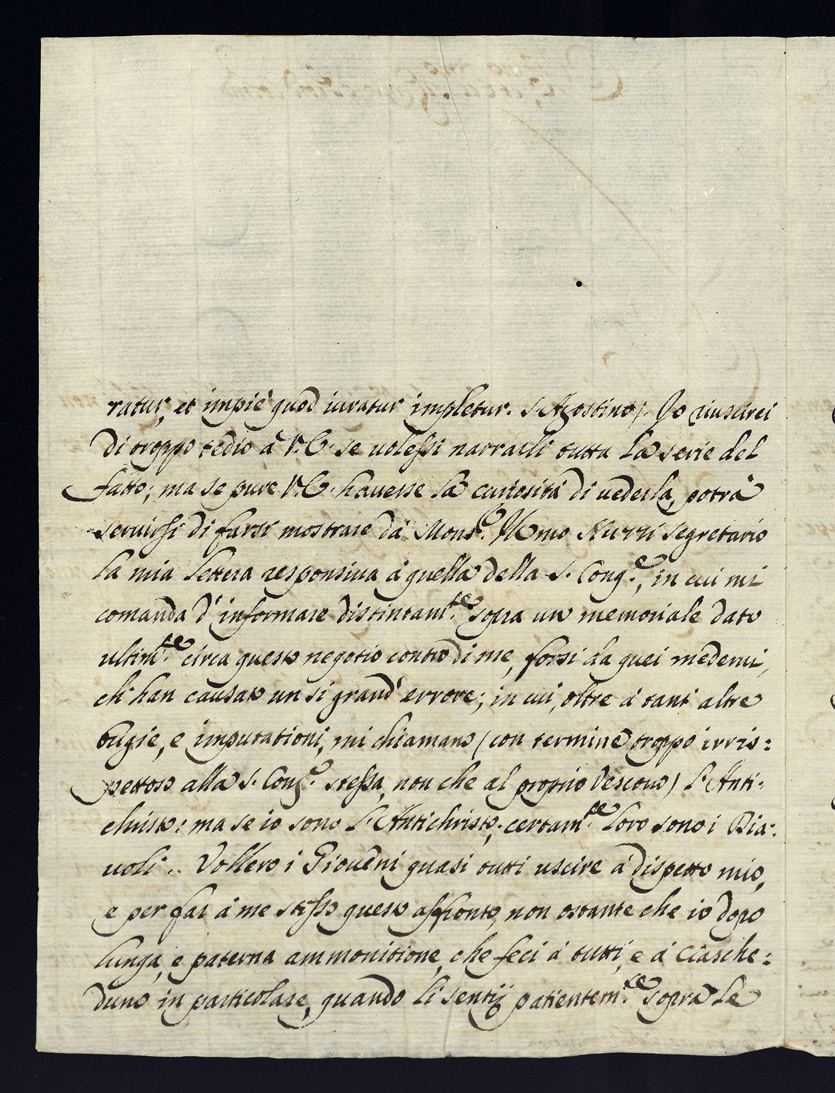 ratur, et impiè quod iuratur impletur. S. Agostino/. Io riuscirei
di troppo tedio à V. E. se uolessi narrarli tutta la serie del
fatto; ma se pure V. E. hauesse la curiosità di uederla, potrà
seruirsi di farsi mostrare da Mons.r Ill.mo Nuzzi segretario
la mia lettera responsiua à quella della S. Cong.e, in cui mi
comanda d'informare distintam.te sopra un memoriale dato
ultim.te circa questo negotio contro di me, forsi da quei medemi,
ch'han causato un si grand'errore; in cui, oltre à tant'altre
bugie, e imputationi, mi chiamano (con termine troppo irris:
pettoso alla S. Cong.e stessa, non che al proprio Vescouo) l'Anti-
christo: ma se io sono l'Antichristo, certam.te loro sono i Dia:
uoli. Vollero i Giouèni quasi tutti uscire à dispetto mio,
e per far à me stesso questo affronto, non ostante che io dopo
lunga, e paterna ammonitione, che feci à tutti, e à ciasche:
duno in particolare, quando li sentij patientem.te sopra le